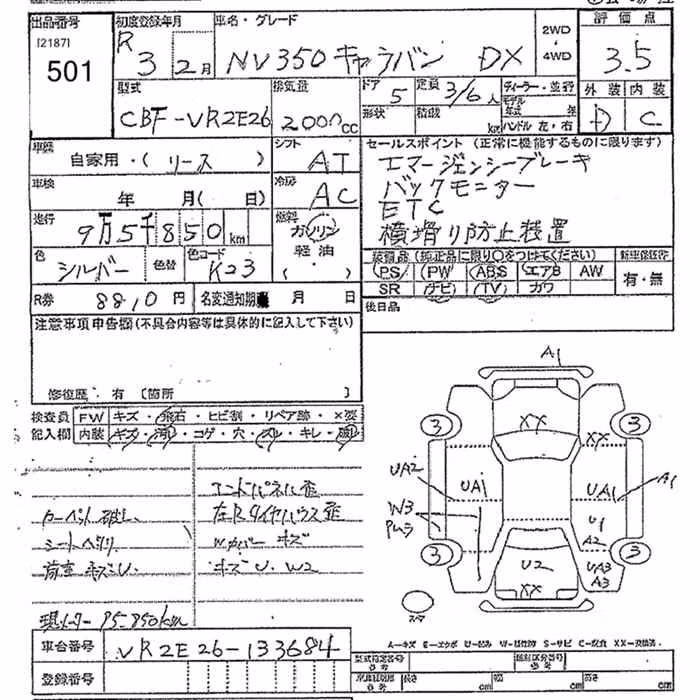 出品番号
[2187]
501
初度登録年月
R 3 2月
車名・グレード
NV350キャラバン DX
2WD
・
4WD
評価点
3.5
外装 内装
D C
型式
CBF-VR2E26
排気量
2000cc
ドア
5
形状
定員 3/6人
積載 kg
ディーラー・並行
モデル年式 年
ハンドル 左・右
車歴
自家用・( リース )
シフト
AT
車検
年 月( 日)
冷房
AC
走行
9万5千850km
燃料
ガソリン
軽油
( )
色
シルバー
色替
色コード
K23
R券 8810円
名変通知期 月 日
セールスポイント (正常に機能するものに限ります)
エマージェンシーブレーキ
バックモニター
ETC
横滑り防止装置
装備品 (純正品に限り○をつけてください)
新車保証書
PS PW ABS エアB AW
有・無
SR ナビ TV カワ
後日品
注意事項申告欄(不具合内容等は具体的に記入して下さい)
修復歴・有 [箇所 ]
検査員
記入欄
FW キズ・飛石・ヒビ割・リペア跡・×要
内装 キズ・汚れ・コゲ・穴・スレ・キレ・破れ
エンドパネル歪
カーペット破レ 左Rタイヤハウス歪
シートヘタリ Wカバー キズ
荷室 キズU キズ U W2
現メーター 95-850km
A1
3 XX XX 3
UA2 UA1 UA1 A1
W3 U1
A2
3 U2 UA3 3
A3
XX
車台番号 VR2E26-133684
登録番号
A-キズ E-エクボ U-凹み W-補修跡 S-サビ C-腐食 XX-交換済
型式指定番号 参考
類別区分番号
長さ cm 幅 cm 高さ cm